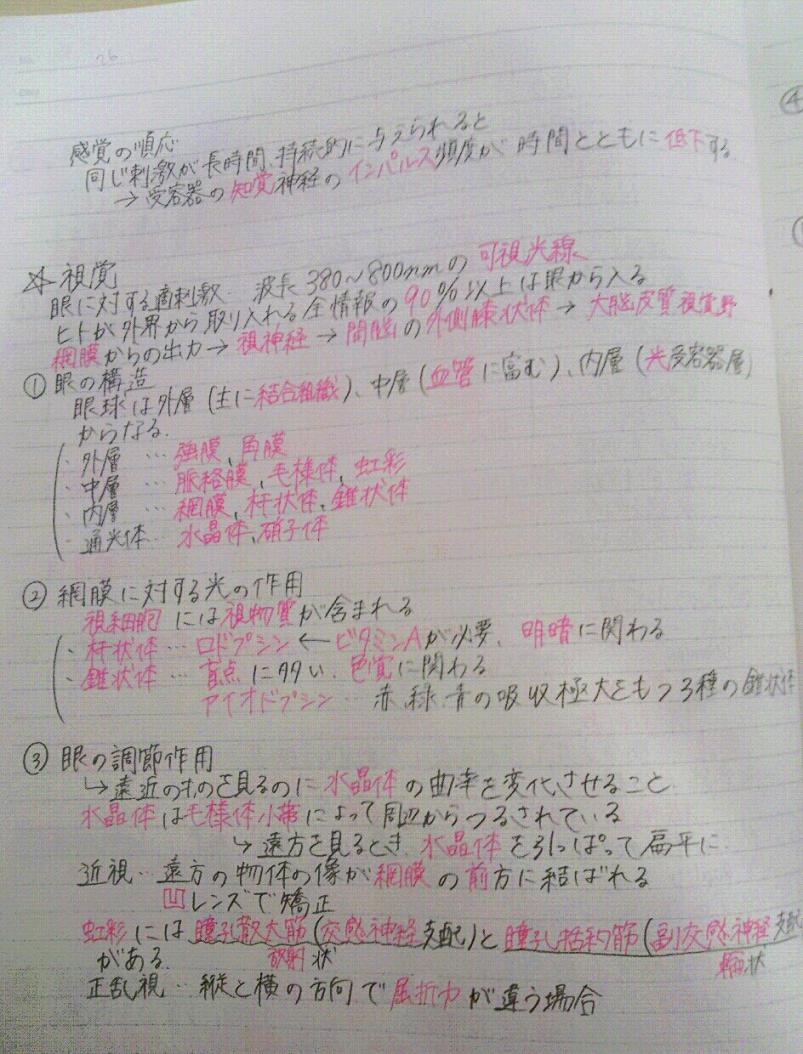 26
感覚の順応
同じ刺激が長時間、持続的に与えられると
→ 受容器の知覚神経のインパルス頻度が時間とともに低下する
☆ 視覚
眼に対する適刺激… 波長380~800nmの可視光線
ヒトが外界から取り入れる全情報の90%以上は眼から入る
網膜からの出力→視神経→間脳の外側膝状体→大脳皮質視覚野
① 眼の構造
眼球は外層(主に結合組織)、中層(血管に富む)、内層(光受容器層)
からなる.
・外層 … 強膜、角膜
・中層 … 脈絡膜、毛様体、虹彩
・内層 … 網膜、杆状体、錐状体
・通光体… 水晶体、硝子体
② 網膜に対する光の作用
視細胞 には視物質が含まれる
・杆状体 … ロドプシン ← ビタミンAが必要、明暗に関わる
・錐状体 … 盲点に多い、色覚に関わる
アイオドプシン … 赤、緑、青の吸収極大をもつ3種の錐状体
③ 眼の調節作用
↳ 遠近のものを見るのに水晶体の曲率を変化させること
水晶体は毛様体小帯によって周辺からつるされている
↳ 遠方を見るとき、水晶体を引っぱって扁平に
近視… 遠方の物体の像が網膜の前方に結ばれる
凹レンズで矯正
虹彩には瞳孔散大筋(交感神経支配)と瞳孔括約筋(副交感神経支配
がある. 放射状 輪状
正乱視… 縦と横の方向で屈折力が違う場合
④